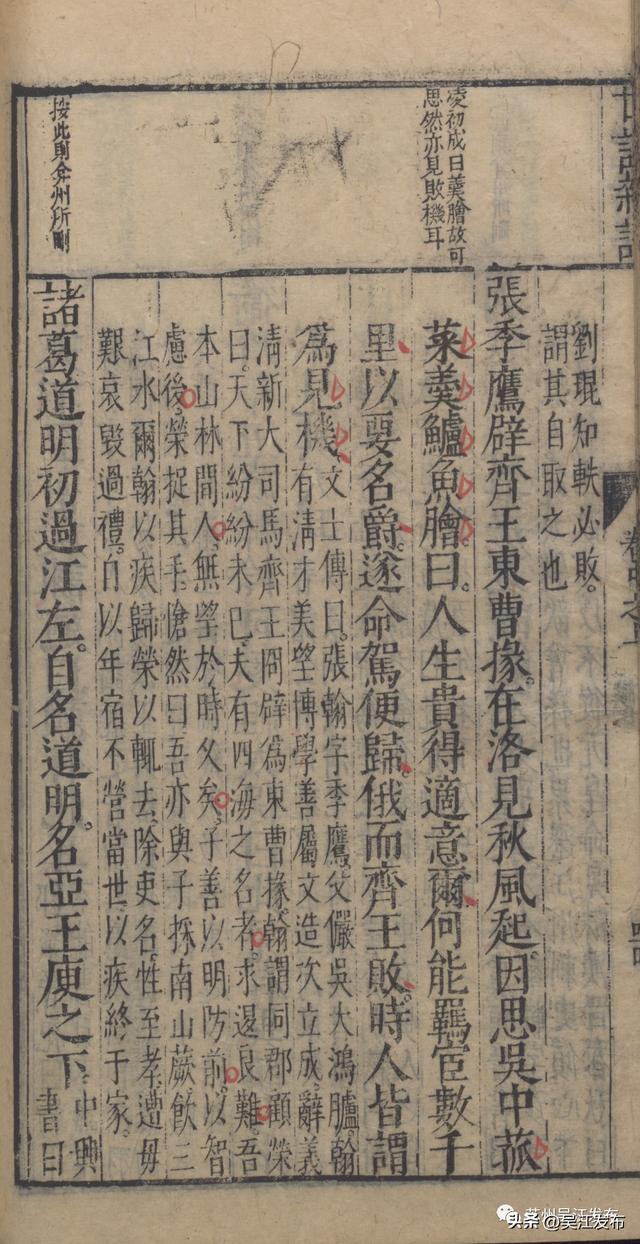 世說新語
凌初成曰蓴膾故可
思然亦見敗機耳
按此則弇州所刪
劉琨知軼必敗
謂其自取之也
張季鷹辟齊王東曹掾在洛見秋風起因思吳中菰
菜羹鱸魚膾曰人生貴得適意爾何能羈宦數千
里以要名爵遂命駕便歸俄而齊王敗時人皆謂
爲見機
文士傳曰張翰字季鷹父儼吳大鴻臚翰
有淸才美望博學善屬文造次立成辭義
淸新大司馬齊王冏辟爲東曹掾翰謂同郡顧榮
曰天下紛紛未已夫有四海之名者求退良難吾
本山林間人無望於時久矣子善以明防前以智
慮後榮捉其手愴然曰吾亦與子採南山蕨飲三
江水爾翰以疾歸榮以輒去除吏名性至孝遭母
艱哀毀過禮自以年宿不營當世以疾終于家
諸葛道明初過江左自名道明名亞王庾之下
中興
書曰
蘇州吴江发布
头条 @吴江发布